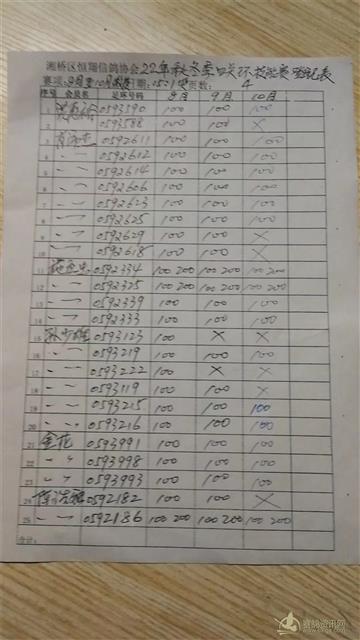 湘桥区恒翔信鸽协会22年秋冬季关环校能赛登记表
赛项:8月至10月 日期: 页数: 4
序号 会员名 足环号码 8月 9月 10月
1 0593590 100 100 100
2 〃 0593588 100 100 ×
3 0592611 100 100 100
4 〃 一 0592612 100 100 100
5 〃 一 0592614 100 100 100
6 〃 一 0592606 100 100 100
7 〃 一 0592623 100 100 100
8 〃 一 0592625 100 100 100
9 〃 一 0592629 100 100 ×
10 〃 一 0592618 100 100 ×
11 0592334 100 200 100 200 100 200
12 〃 一 0592325 100 200 100 200 100 200
13 〃 一 0592339 100 100 100
14 〃 一 0592333 100 100 100
15 孙少雄 0593123 100 × ×
16 〃 一 0593219 100 100 100
17 〃 一 0593222 100 × ×
18 〃 一 0593119 100 100 ×
19 〃 一 0593215 100 100 100
20 〃 〃 0593216 100 100 100
21 金花 0593991 100 100 100
22 〃 〃 0593998 100 100 100
23 〃 〃 0593993 100 100 100
24 0592182 100 100 ×
25 〃 一 0592186 100 200 100 200 100 200
合计:
赛鸽资讯网